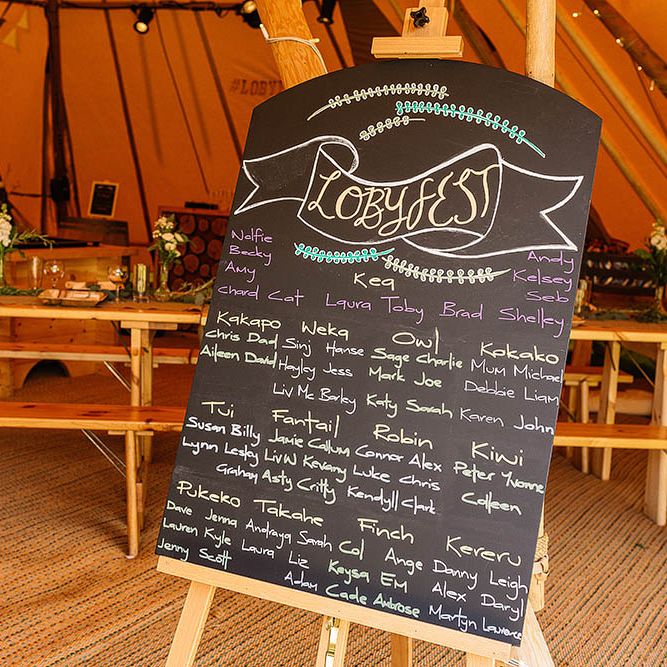 #LOBY
LOBYFEST
Nolfie
Becky
Amy
Chard Cat
Kea
Laura Toby
Brad
Shelley
Andy
Kelsey
Seb
Kakapo
Chris Dad
Aileen David
Weka
Sinj Hanse
Hayley Jess
Liv Mc Barley
Owl
Sage Charlie
Mark Joe
Katy Sarah
Kokako
Mum Michael
Debbie Liam
Karen John
Tui
Susan Billy
Lynn Lesley
Graham
Fantail
Jamie Callum
Liv W Kevany
Asty Critty
Robin
Connor Alex
Luke Chris
Kendyll Clark
Kiwi
Peter Yvonne
Colleen
Pukeko
Dave Jenna
Lauren Kyle
Jenny Scott
Takahe
Andraya Sarah
Laura Liz
Adam
Finch
Col Ange
Keysa EM
Cade Ambrose
Kereru
Danny Leigh
Alex Daryl
Martyn Lawrence